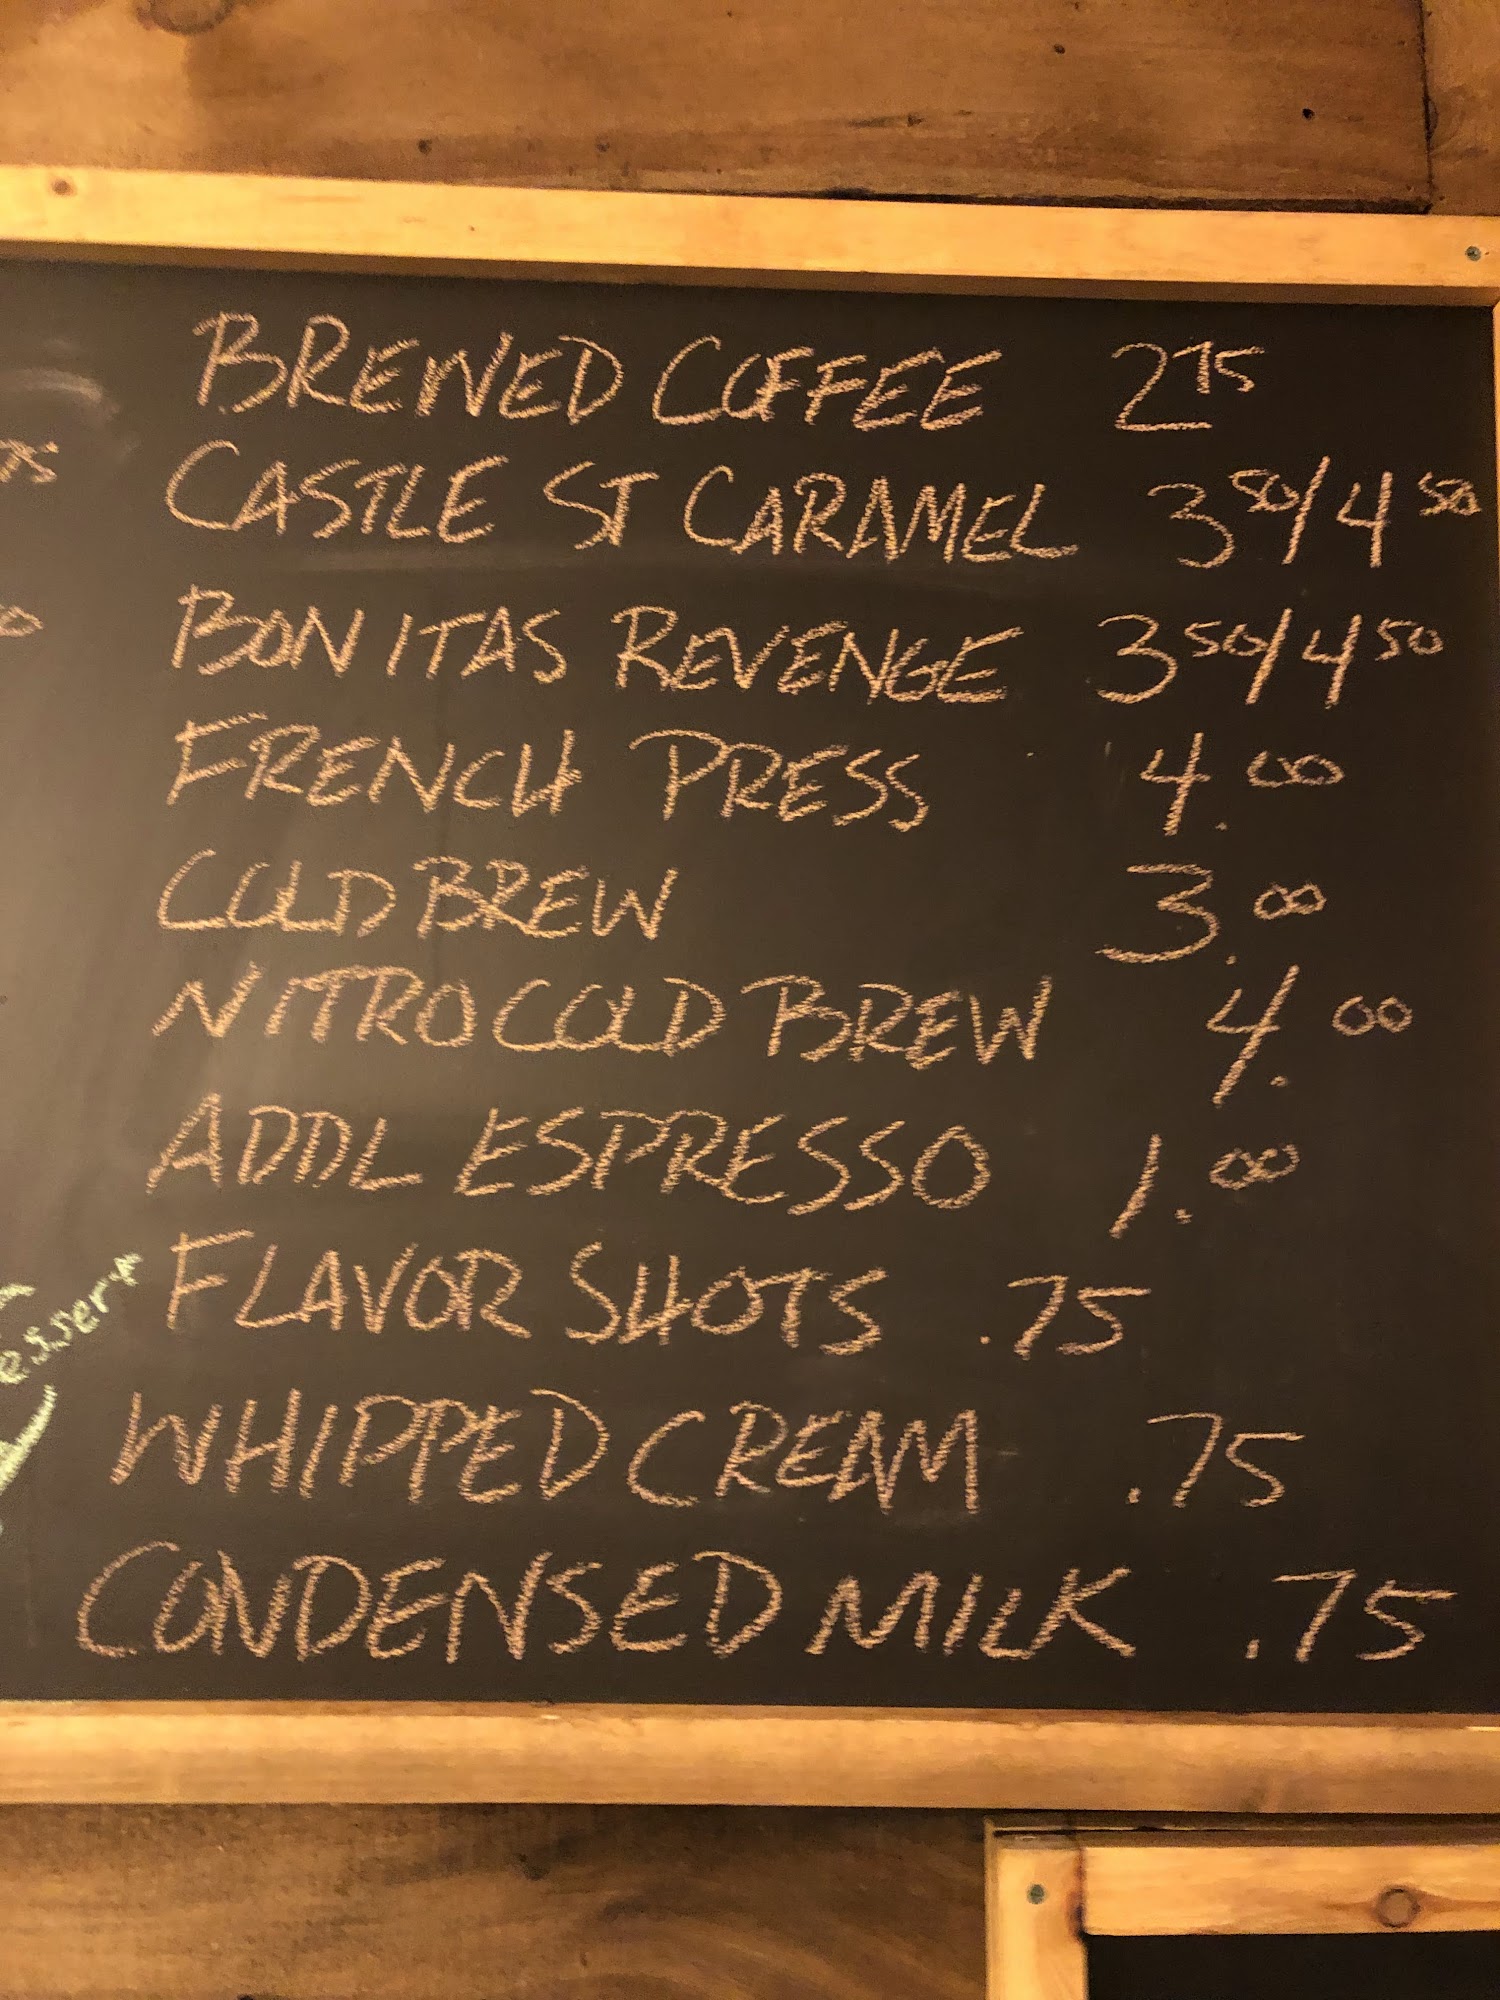 BREWED COFFEE 2 75
75 CASTLE ST CARAMEL 3 50/4 50
BONITAS REVENGE 3 50/4 50
FRENCH PRESS 4.00
COLD BREW 3.00
NITRO COLD BREW 4.00
ADDL ESPRESSO 1.00
FLAVOR SHOTS .75
WHIPPED CREAM .75
CONDENSED MILK .75